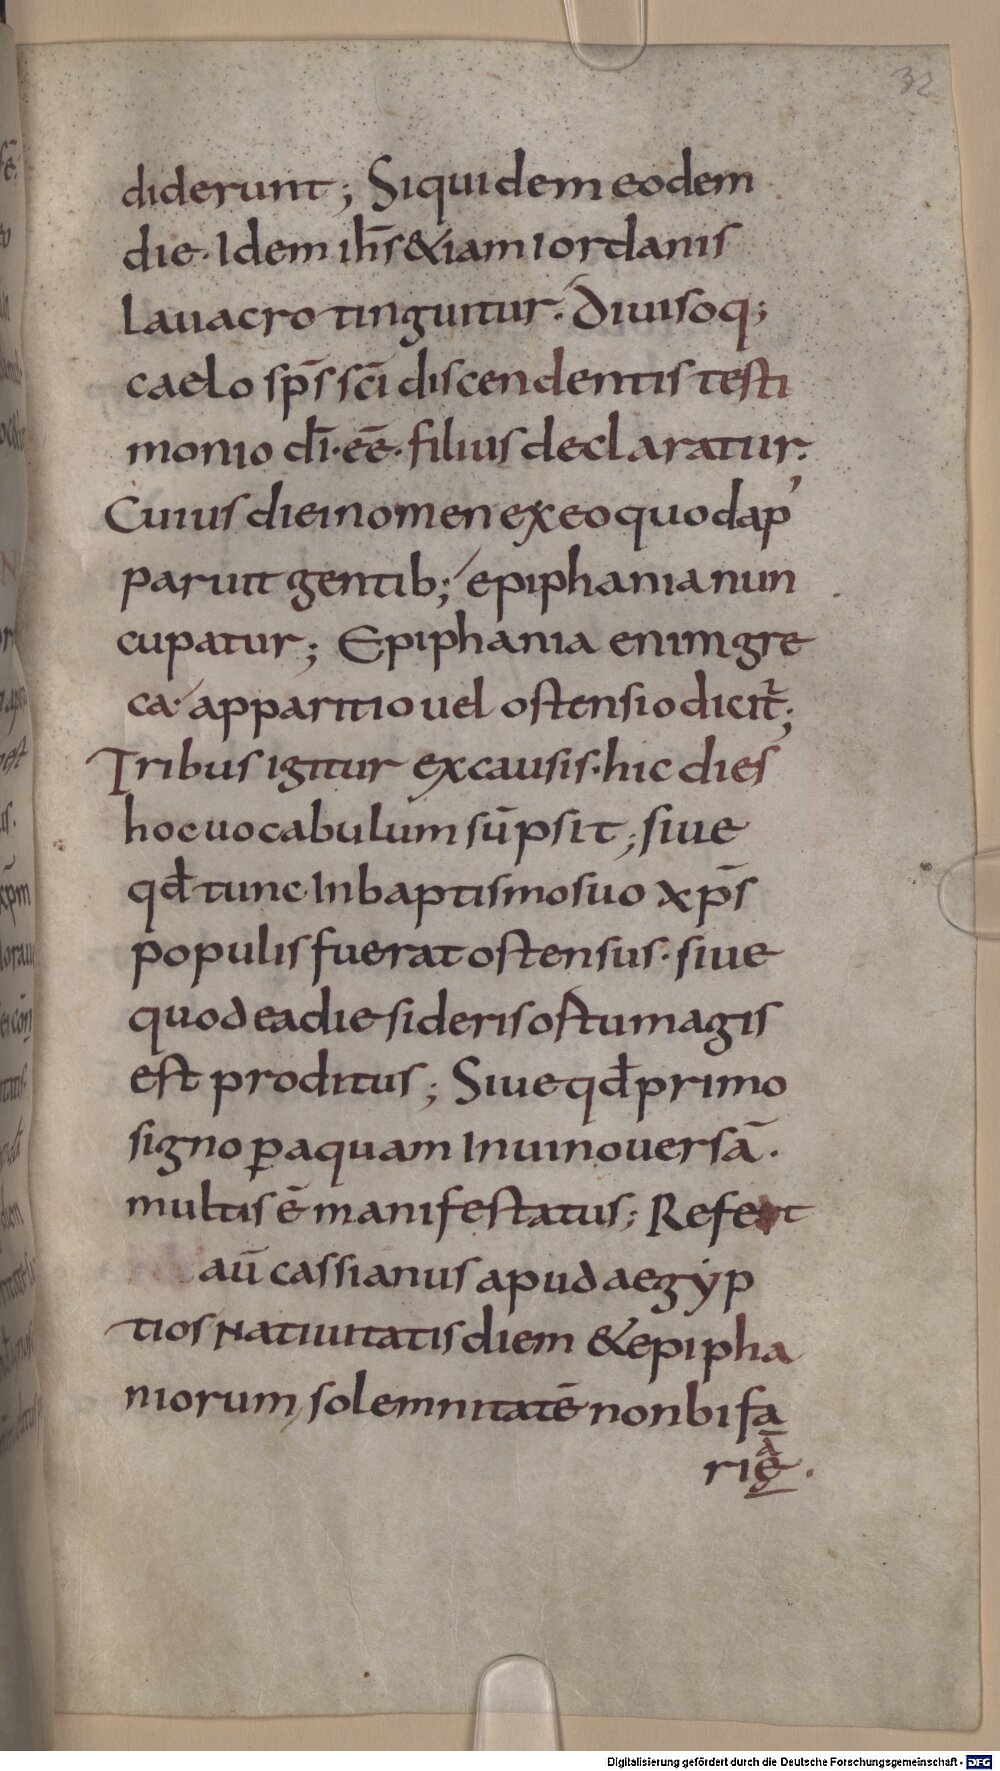 32
diderunt; Siquidem eodem
die. Idem ih̄s & iam Iordanis
lauacro tinguitur. Diuisoq;
caelo sp̄s sc̄i discendentis testi
monio dī. eē. filius declaratur.
Cuius diei nomen ex eo quod ap
paruit gentib; epiphania nun
cupatur; Epiphania enim gre
ca. apparitio uel ostensio dicit̄;
Tribus igitur ex causis. hic dies
hoc uocabulum sūpsit; siue
qđ tunc In baptismo suo xp̄s
populis fuerat ostensus. siue
quod ea die sideris ostu magis
est proditus; Siue qđ primo
signo ꝑ aquam In uino uersā.
multis ē manifestatus; Refert
aū cassianus apud aegyp
tios natiuitatis diem & epipha
niorum solemnitatē non bifa
rie ā.
Digitalisierung gefördert durch die Deutsche Forschungsgemeinschaft - DFG